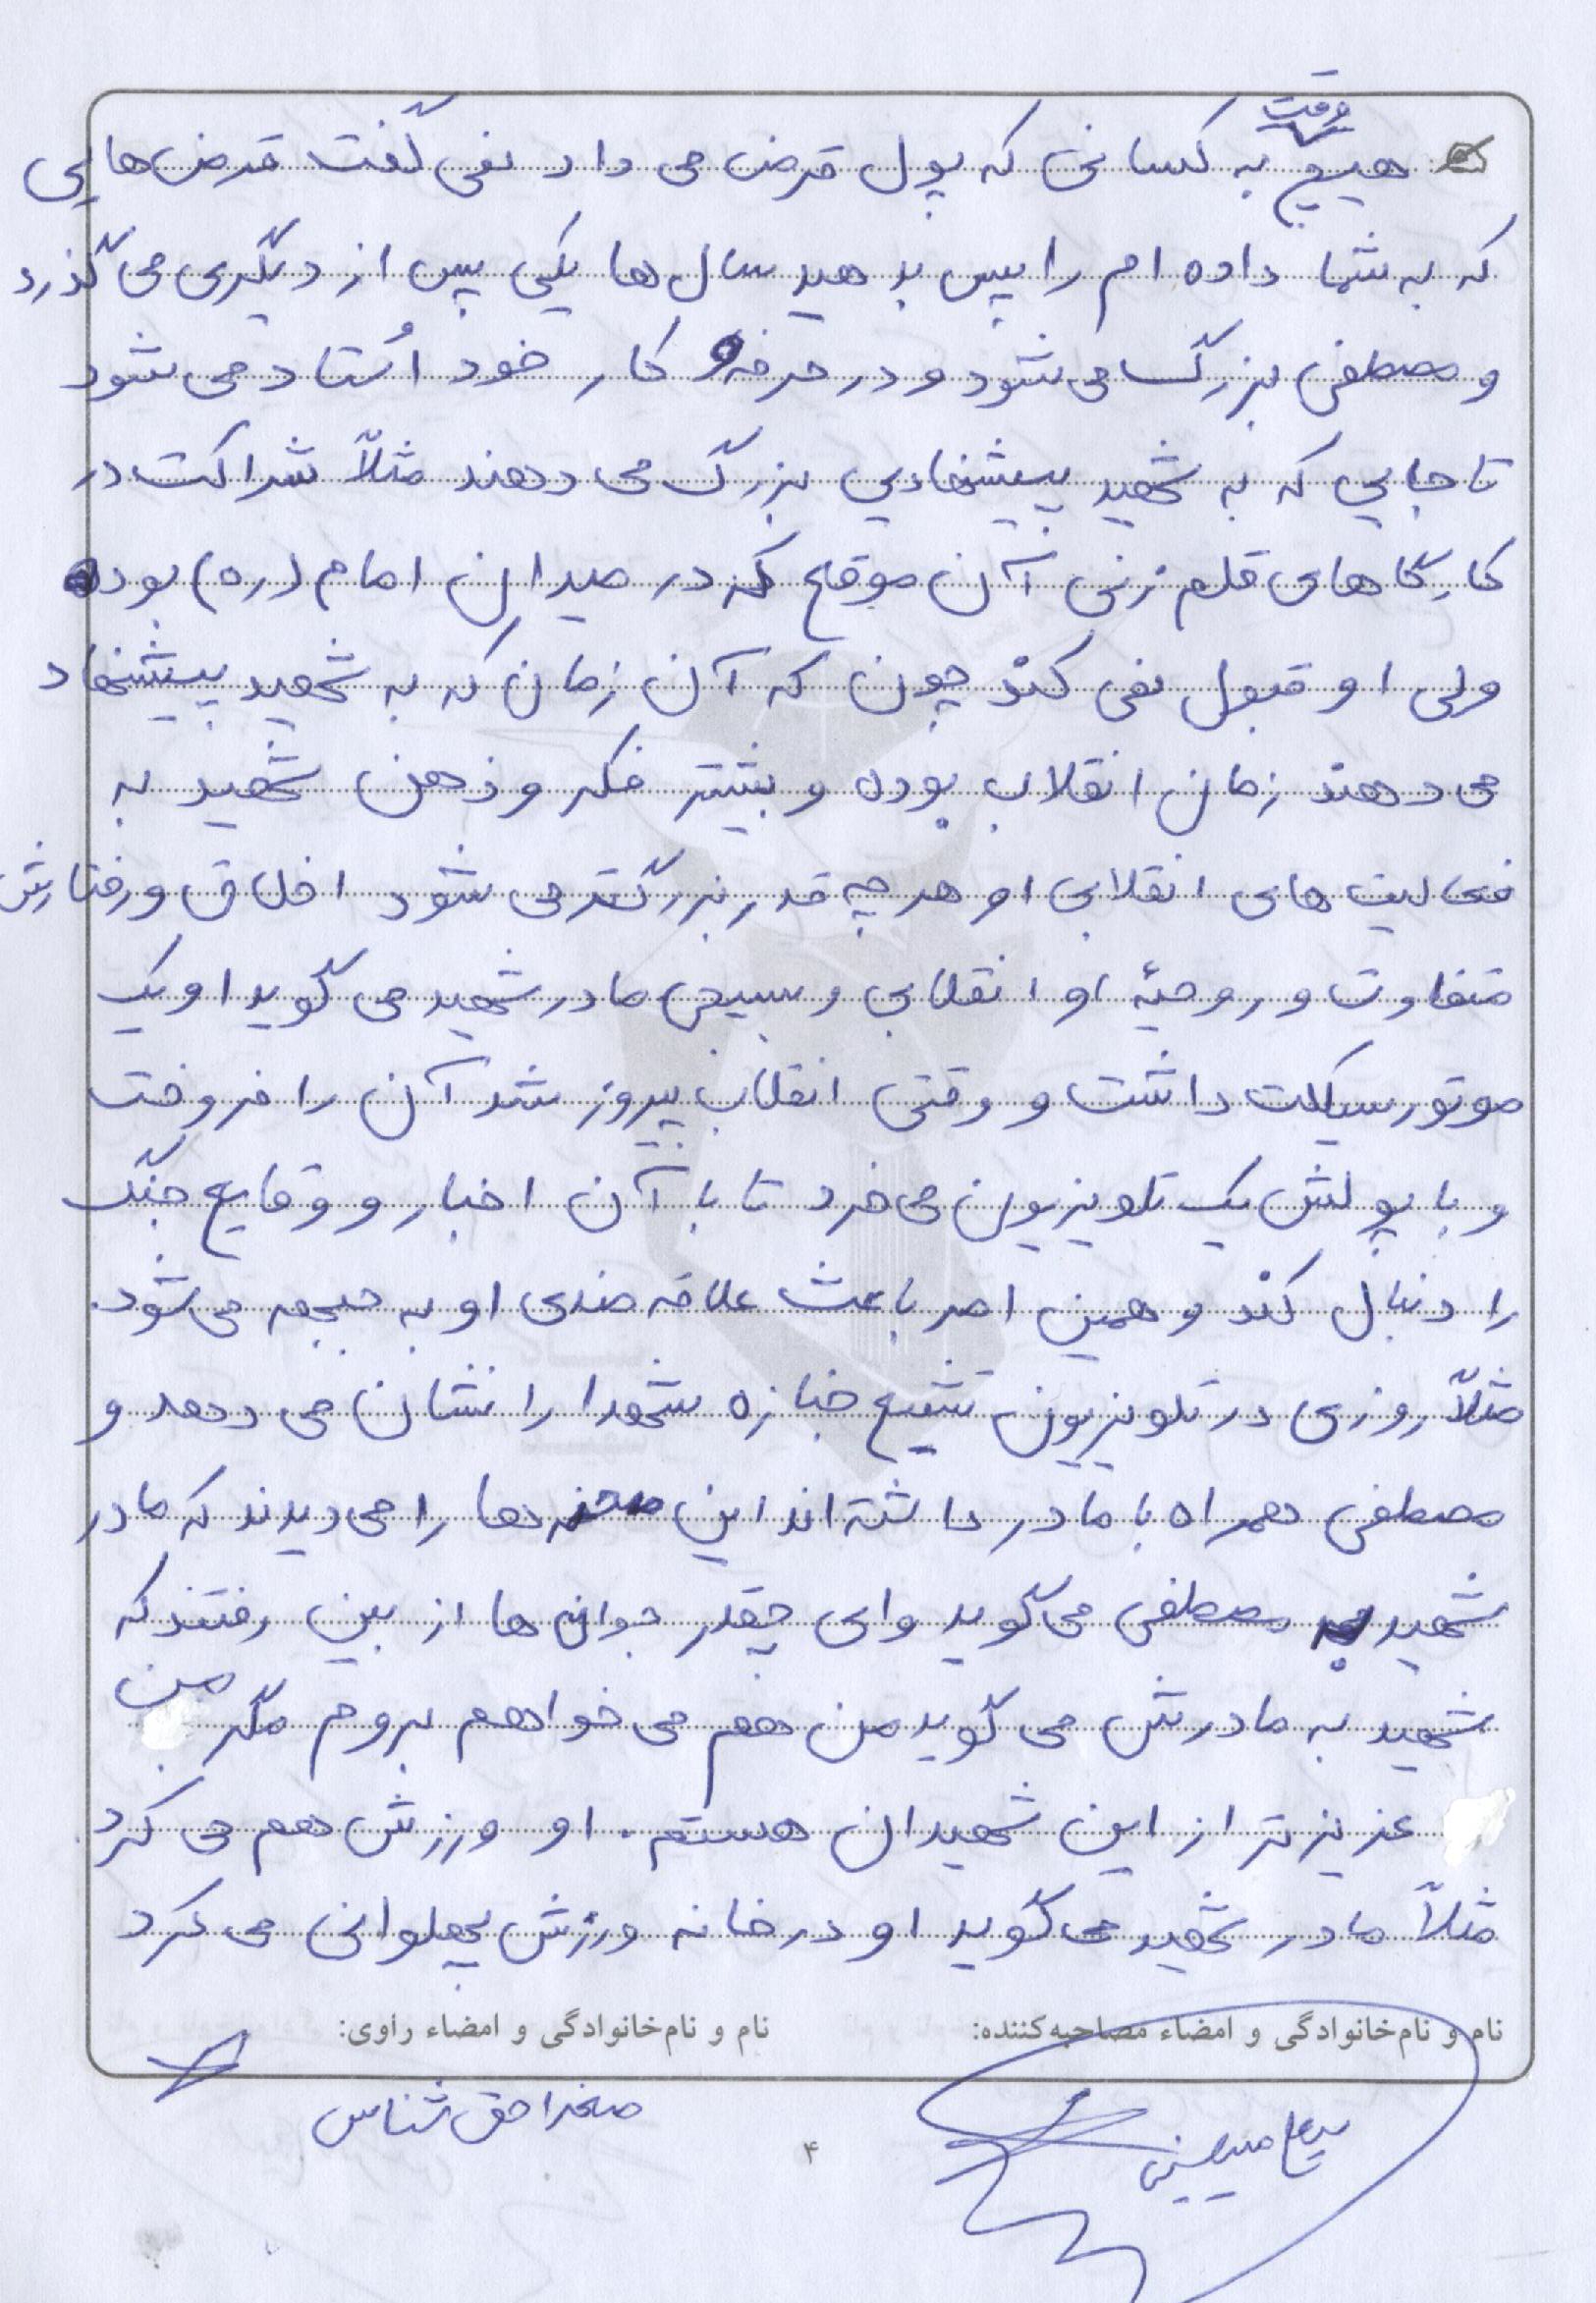 هیچ وقت به کسانی که پول قرض می داد نمی گفت قرض هایی
که به شما داده ام را پس بدهید سال ها یکی پس از دیگری می گذرد
و مصطفی بزرگ می شود و در حرفه و کار خود اُستاد می شود
تا جایی که به شهید پیشنهادیی بزرگ می دهند مثلاً شراکت در
کارگاهای قلم زنی آن موقع که در میدان امام (ره) بوده
ولی او قبول نمی کند چون که آن زمان که به شهید پیشنهاد
می دهند زمان انقلاب بوده و بیشتر فکر و ذهن شهید به
فعالیت های انقلابی او هر چه قدر بزرگتر می شود اخلاق و رفتارش
متفاوت و روحیّه او انقلابی و بسیجی مادر شهید می گوید او یک
موتورسیکلت داشت و وقتی انقلاب پیروز شد آن را فروخت
و با پولش یک تلویزیون می خرد تا با آن اخبار و وقایع جنگ
را دنبال کند و همین امر باعث علاقه مندی او به جبهه می شود.
مثلاً روزی در تلویزیون تشیع جنازه شهدا را نشان می دهد و
مصطفی همراه با مادر داشته اند این صحنه ها را می دیدند که مادر
شهید به مصطفی می گوید وای چقدر جوان ها از بین رفتند که
شهید به مادرش می گوید من هم می خواهم بروم مگر من
عزیزتر از این شهیدان هستم. او ورزش هم می کرد.
مثلاً مادر شهید می گوید او در خانه ورزش پهلوانی می کرد
نام و نام‌خانوادگی و امضاء مصاحبه‌کننده: نام و نام‌خانوادگی و امضاء راوی:
صغرا حق شناس
۴